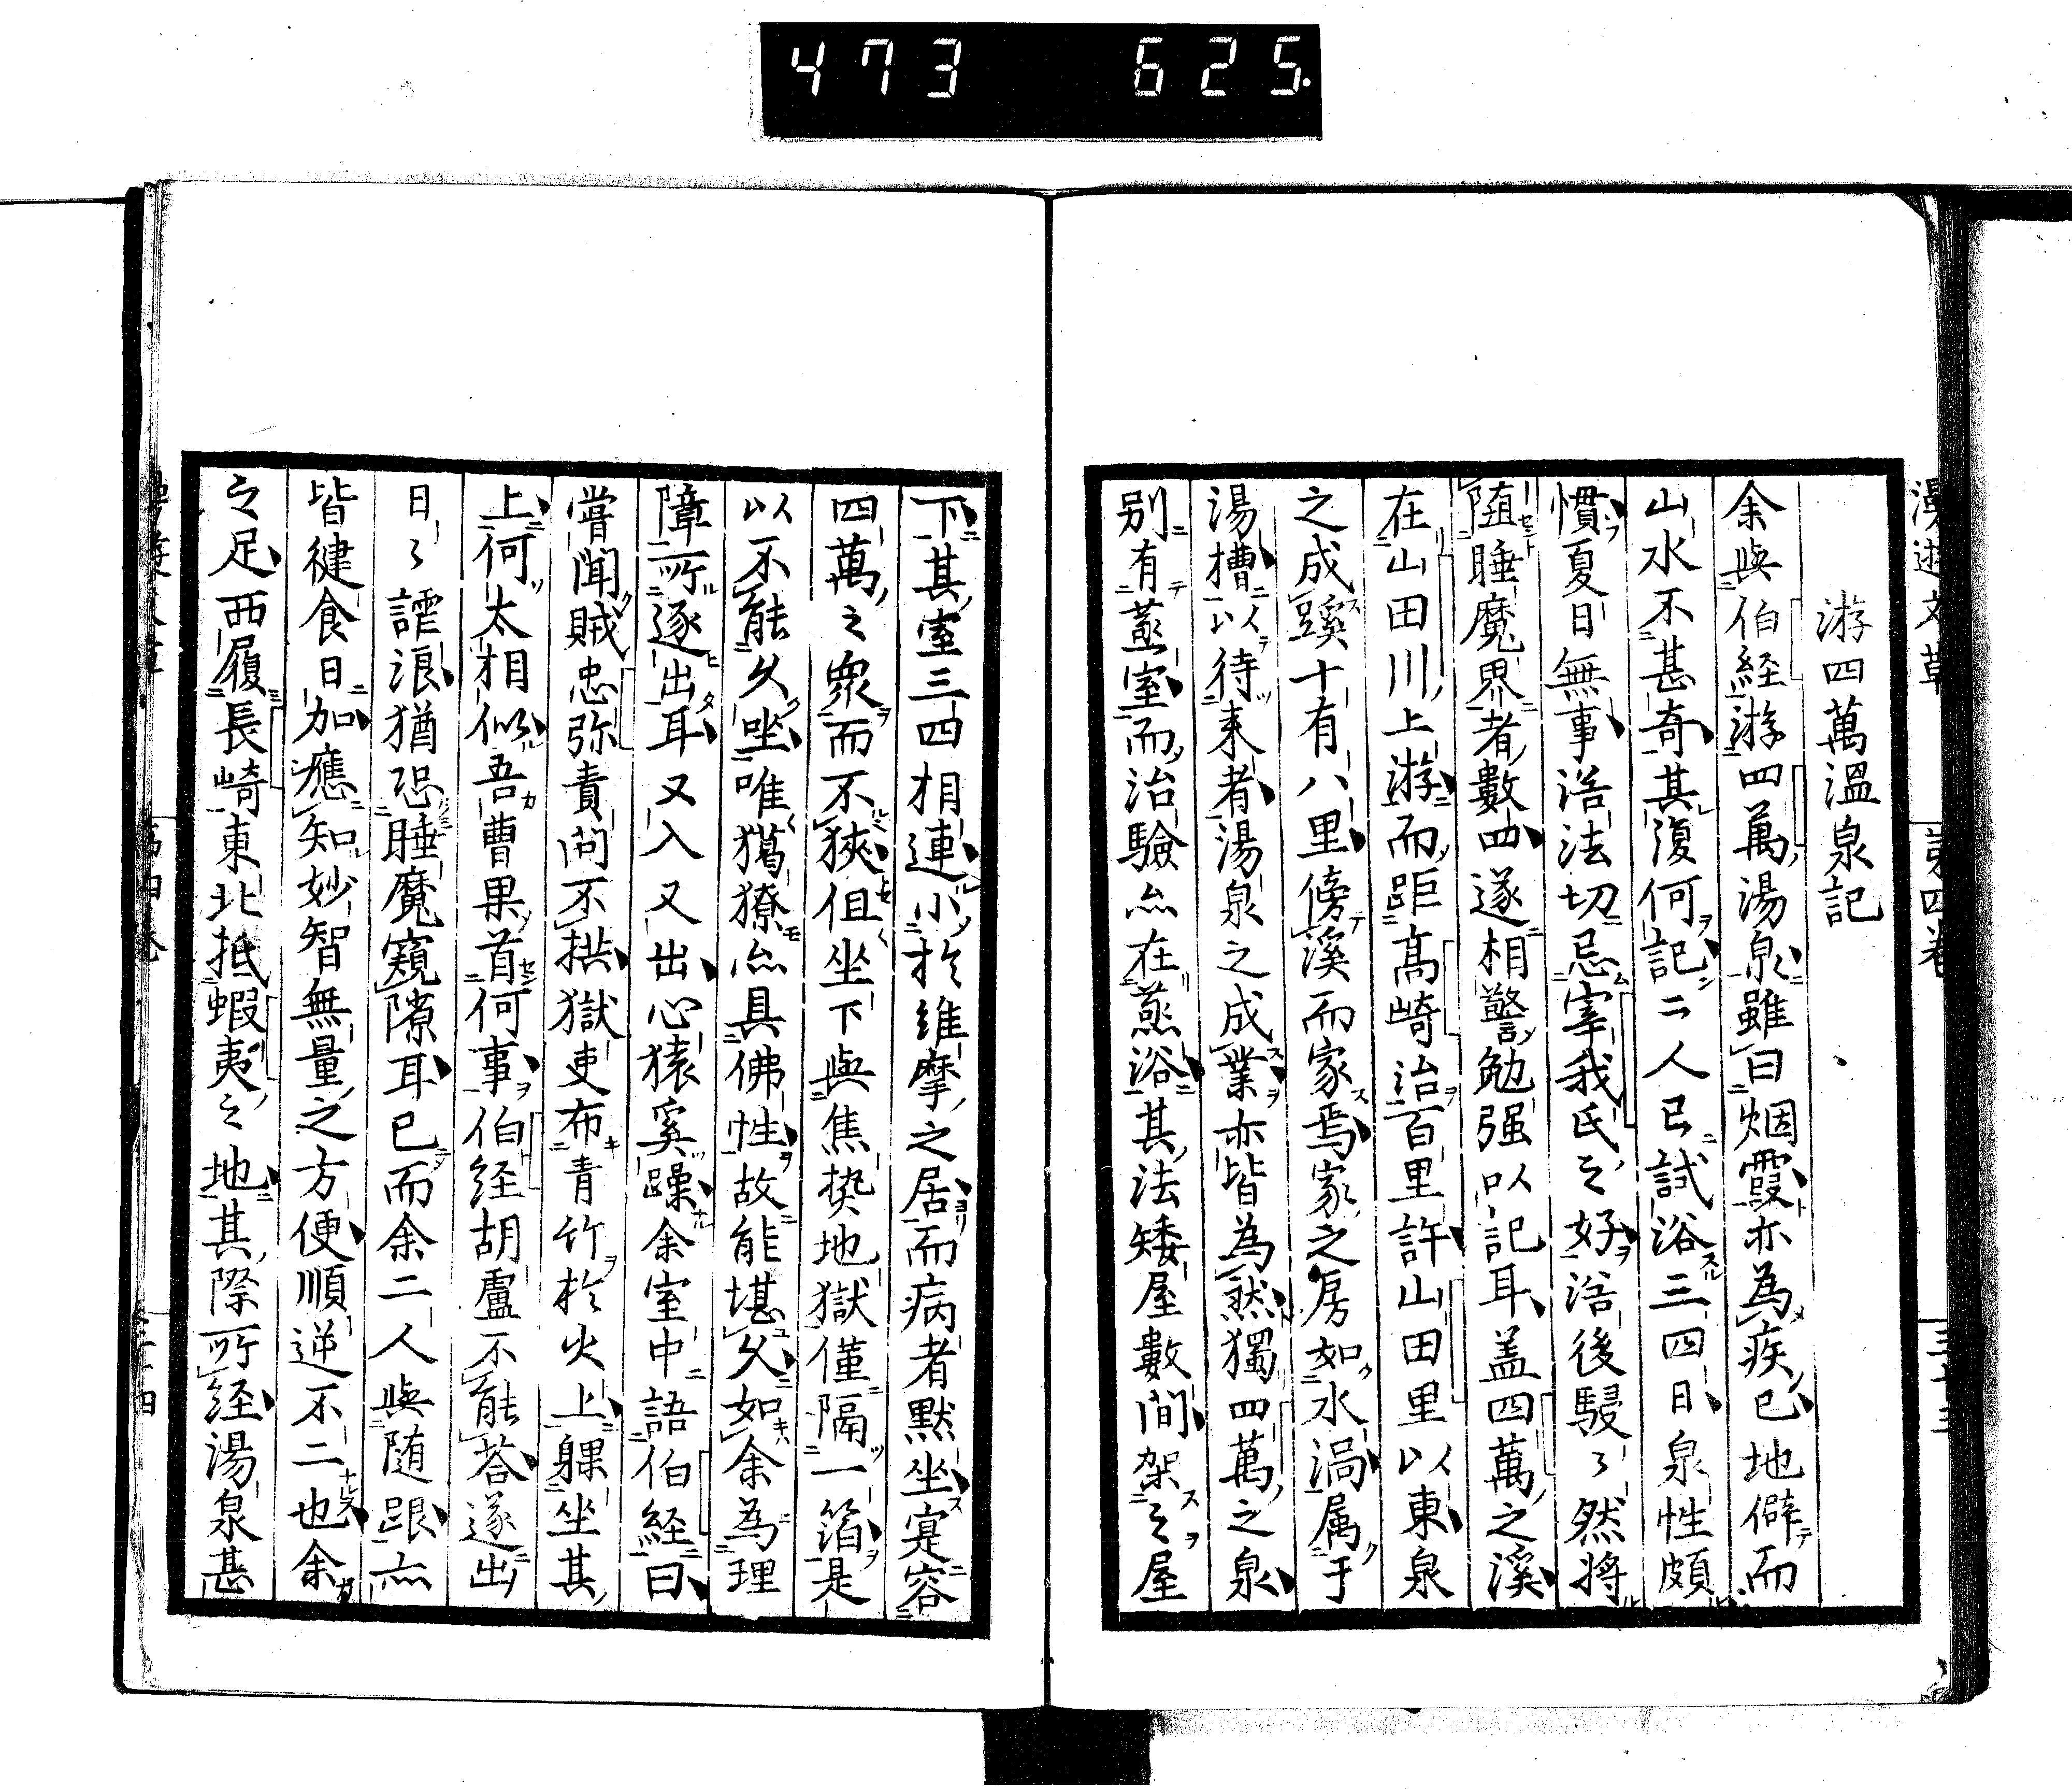 473 625
漫遊文草 第四卷
游四萬溫泉記
余與伯経游四萬湯泉雖曰烟霞亦為疾已地僻而
山水不甚奇其復何記二人已試浴三四日泉性頗
慣夏日無事浴法切忌宰我氏之好浴後駸々然將
随睡魔界者數四遂相警勉强以記耳盖四萬之溪
在山田川上游而距高崎治百里許山田里以東泉
之成蹊十有八里傍溪而家焉家之房如水渦属于
湯槽以待来者湯泉之成業亦皆為然獨四萬之泉
别有蒸室而治驗亦在蒸浴其法矮屋數間架之屋
下其室三四相連小於維摩之居而病者默坐寔容
四萬之衆而不狹但坐下與焦熱地獄僅隔一箔是
以不能久坐唯獦獠亦具佛性故能堪久如余為理
障所逐出耳又入又出心猿奚躁余室中語伯経曰
嘗聞賊忠弥責問不拱獄吏布青竹於火上躶坐其
上何太相似吾曹果首何事伯経胡盧不能荅遂出
日々謔浪猶恐睡魔窺隙耳已而余二人與随跟亦
皆健食日加應知妙智無量之方便順逆不二也余
之足西履長崎東北抵蝦夷之地其際所経湯泉甚